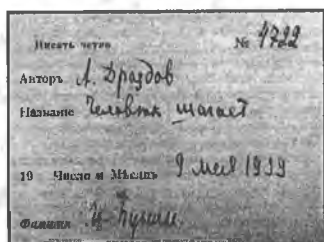 Писать четко № 1722
Авторъ А. Дроздов
Названіе Человѣк шагает
19 Число и Мѣсяцъ 9 мая 1939
Фамилія И. Бунин